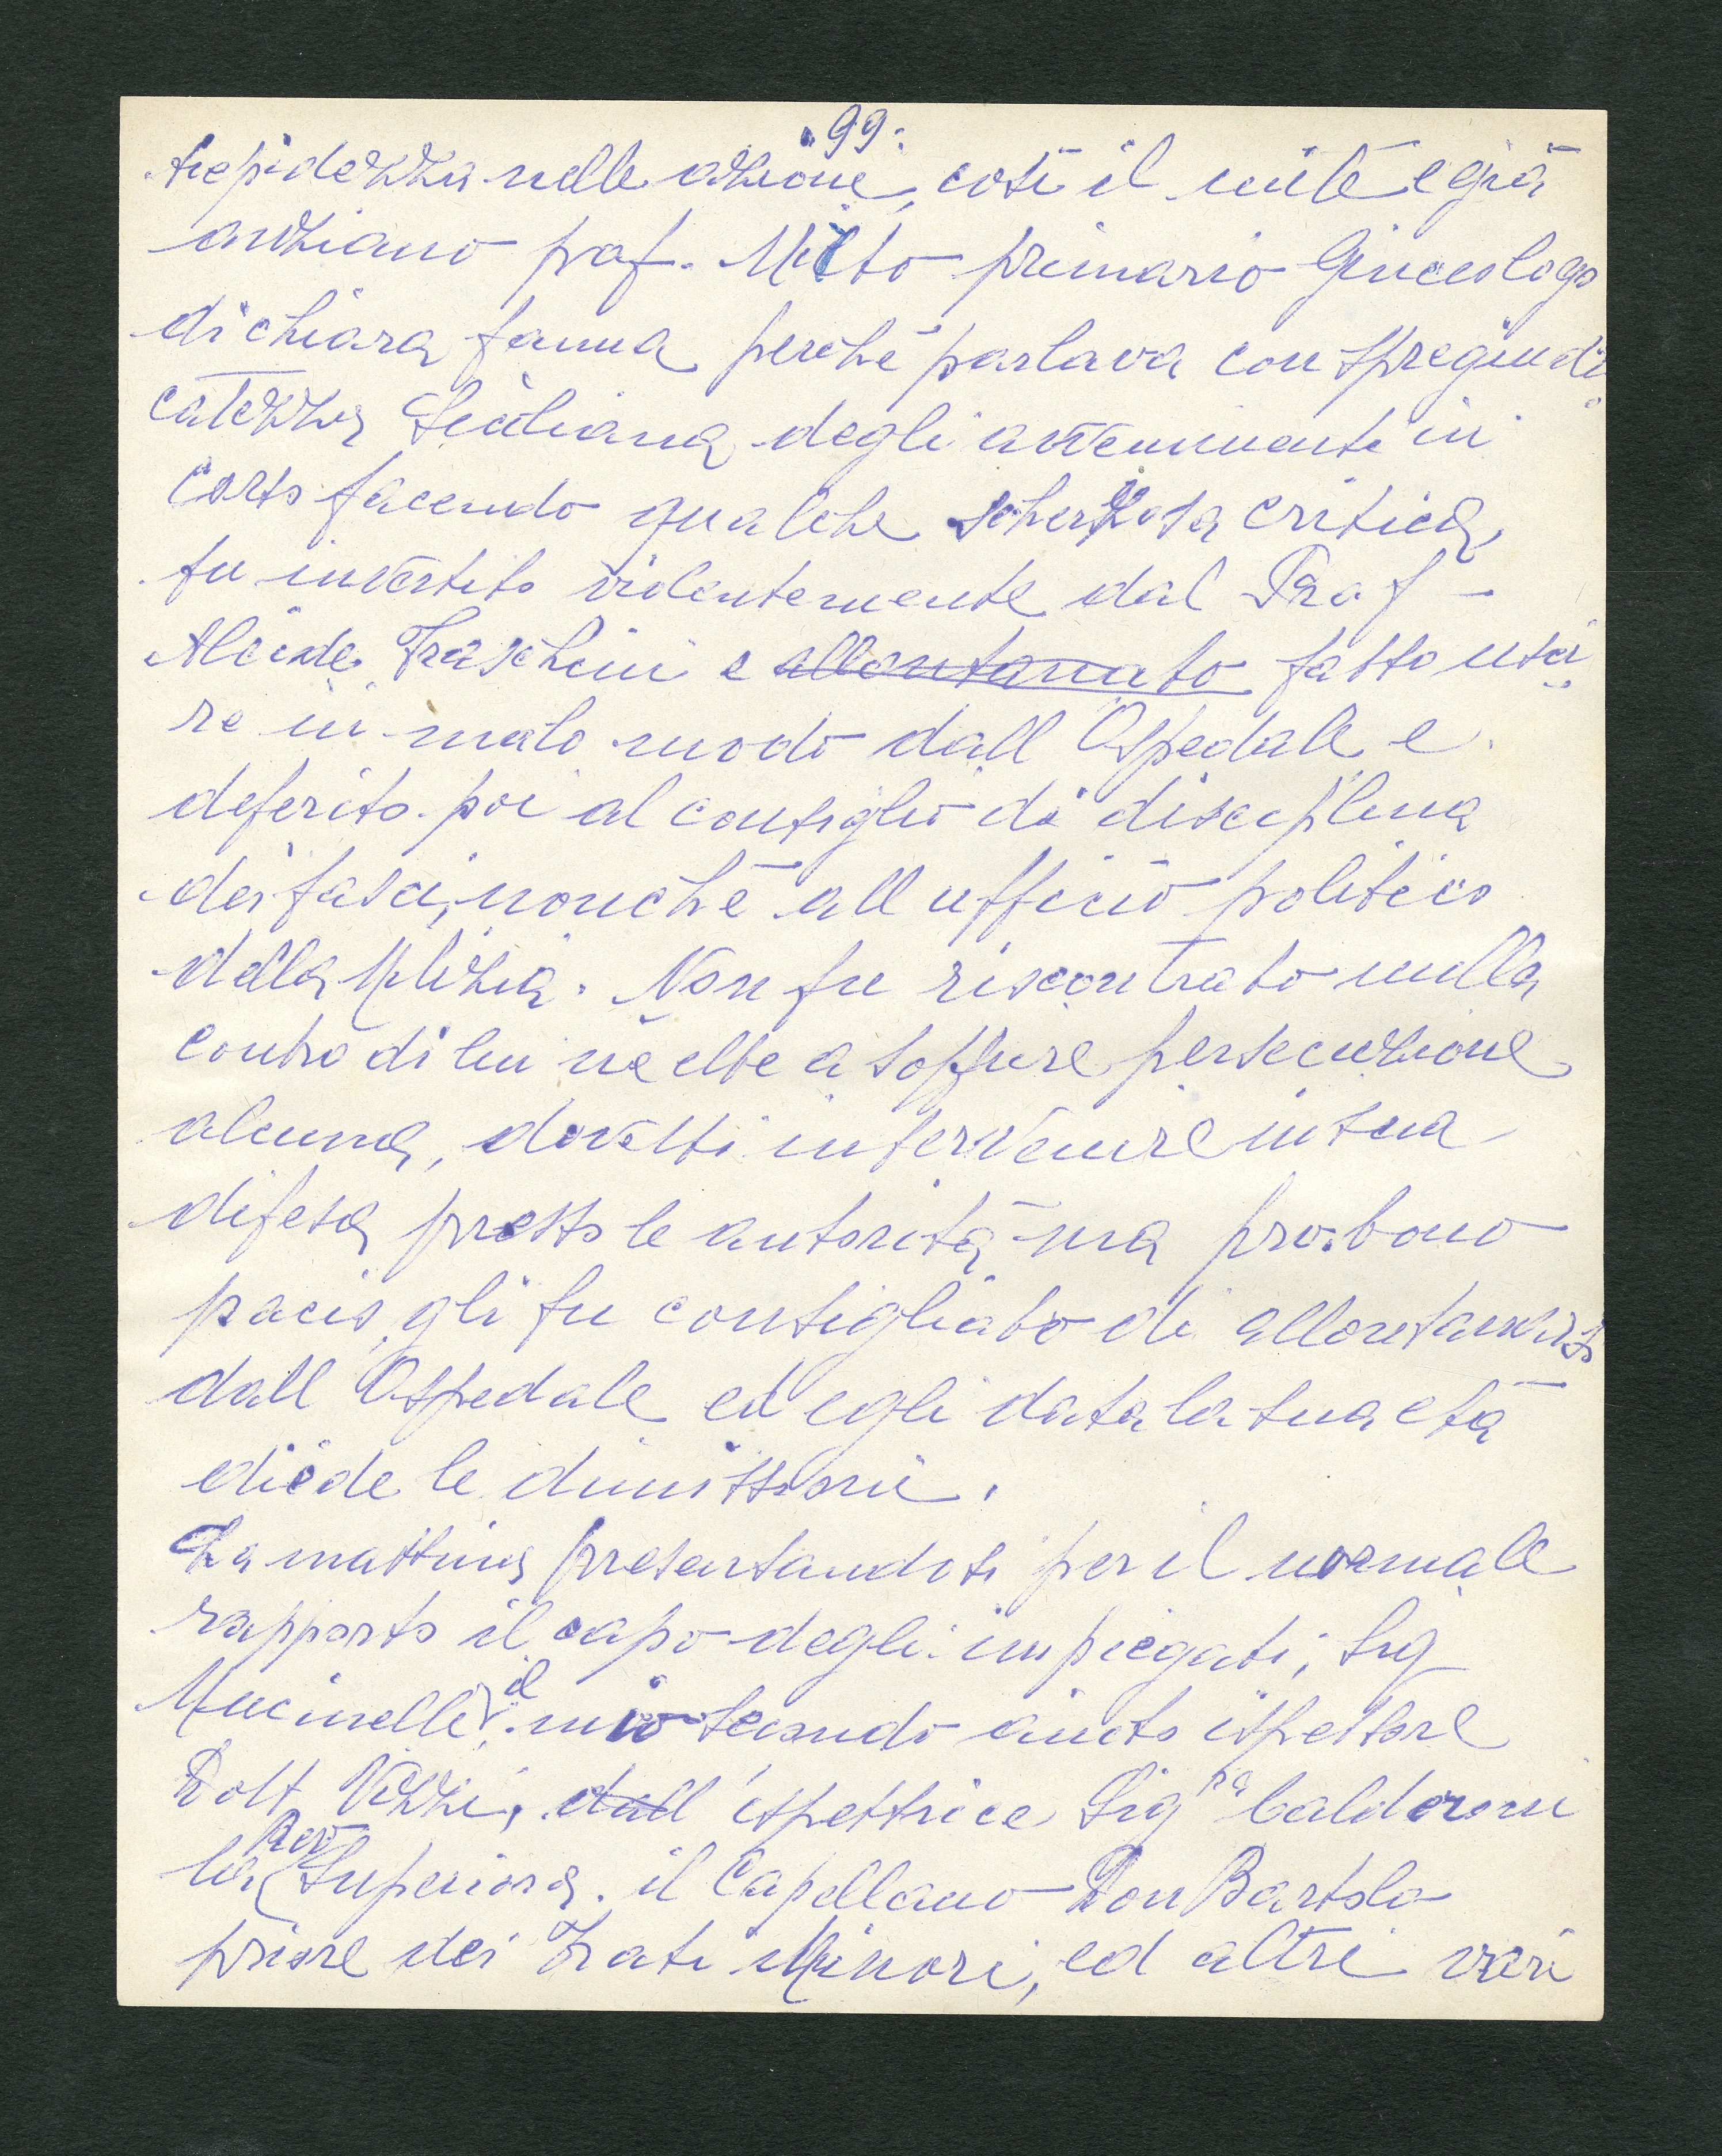 . 99 .
tiepidezza nelle azione, così il mite e già
anziano prof. Milto primario Ginecologo
di chiara fama perchè parlava con spregiudi
catezza Siciliana degli avvenimenti in
corso facendo qualche scherzosa critica,
fu investito violentemente dal Prof -
Alcide Fraschini e allontanato fatto usci
re in malo modo dall Ospedale e
deferito poi al consiglio di disciplina
dei fasci, nonchè all ufficio politico
della Milizia. Non fu riscontrato nulla
contro di lui nè ebbe a soffrire persecuzione
alcuna, dovetti intervenire in sua
difesa presso le autorità ma pro bono
pacis gli fu consigliato di allontanarsi
dall Ospedale ed egli data la sua età
diede le dimissioni.
La mattina presentandosi per il normale
rapporto il capo degli impiegati, Sig
il mio secondo aiuto ispettore
Dott Vizzi, dall ispettrice Sigra Calderoni
la Rev Superiora. il Capellano Don Bartolo
priore dei Frati Minori, ed altri vari